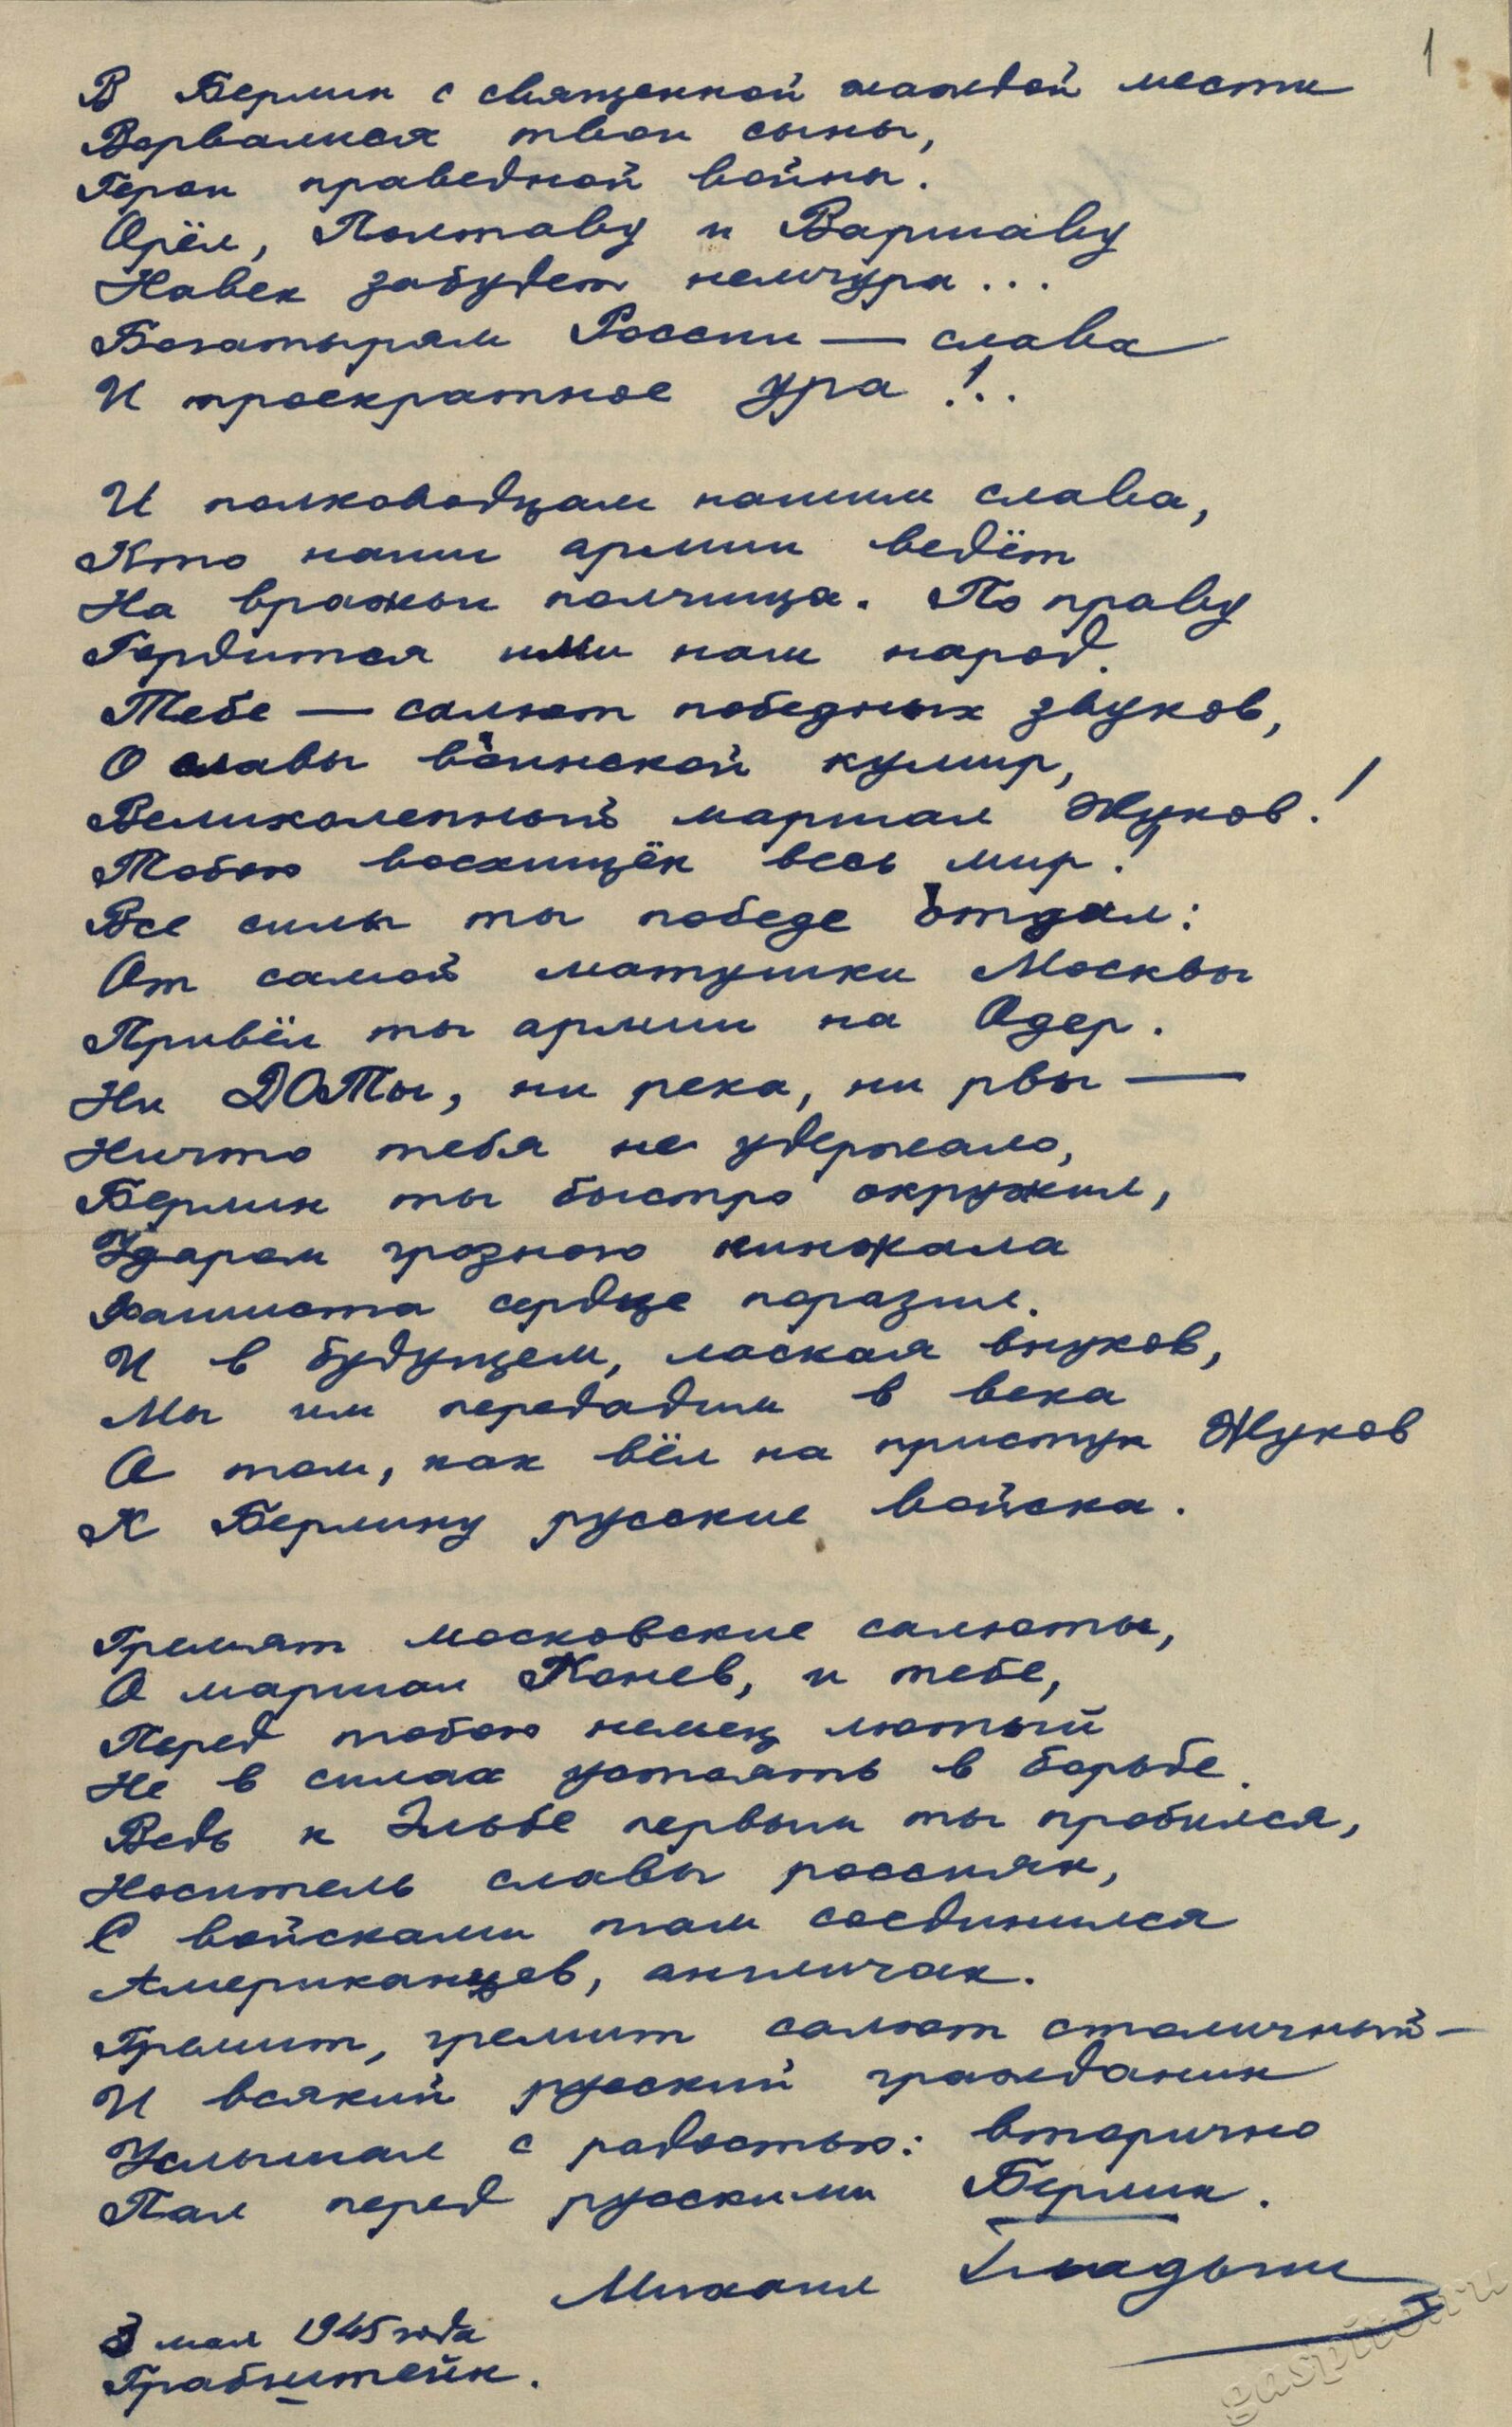 1
В Берлин с священной жаждой мести
Ворвалися твои сыны,
Герои праведной войны.
Орёл, Полтаву и Варшаву
Навек забудет немчура...
Богатырям России — слава
И троекратное ура!..
И полководцам нашим слава,
Кто наши армии ведёт
На вражьи полчища. По праву
Гордится ими наш народ.
Тебе — салют победных звуков,
О славы воинской кумир,
Великолепный маршал Жуков!
Тобою восхищён весь мир!
Все силы ты победе отдал:
От самой матушки Москвы
Привёл ты армии на Одер.
Ни ДОТы, ни река, ни рвы —
Ничто тебя не удержало,
Берлин ты быстро окружил,
Ударом грозного кинжала
Фашиста сердце поразил.
И в будущем, лаская внуков,
Мы им передадим в века
О том, как вёл на приступ Жуков
К Берлину русские войска.
Гремят московские салюты,
О маршал Конев, и тебе,
Перед тобою немец лютый
Не в силах устоять в борьбе.
Ведь к Эльбе первым ты пробился,
Носитель славы россиян,
С войсками там соединился
Американцев, англичан.
Гремит, гремит салют столичный —
И всякий русский гражданин
Услышал с радостью: вторично
Пал перед русскими Берлин.
Михаил Гладыш
3 мая 1945 года
Грабштейн.
gaspito.ru